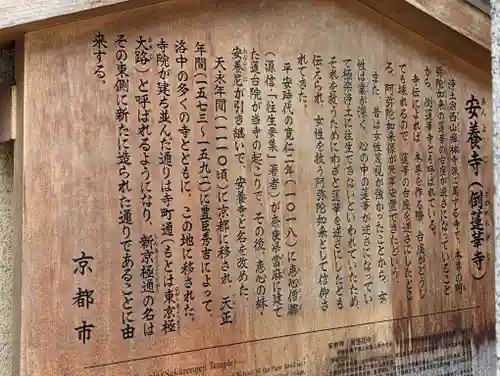 安養寺（倒蓮華寺）
浄土宗西山禅林寺派に属する寺で、本尊の阿
弥陀如来の蓮華の台座が逆さになっていること
から、倒蓮華寺とも呼ばれている。
寺伝によれば、本尊を作る際、台座がどうし
ても壊れるので、蓮華の台座を逆さにしたとこ
ろ、阿弥陀如来像が無事安置できたという。
また、昔は女性蔑視が強かったことから、女
性は業が深く、心の中の蓮華が逆さになってい
て極楽浄土に往生できないといわれていたため、
それを救うためにわざと蓮華を逆さにしたとも
伝えられ、女性を救う阿弥陀如来として信仰さ
れてきた。
平安時代の寛仁二年（一〇一八）に恵心僧都
（源信・「往生要集」著者）が奈良県當麻に建て
た蓮台院が当寺の起こりで、その後、恵心の妹
安養尼が引き継いで、安養寺と名を改めた。
天永年間（一一一〇頃）に京都に移され、天正
年間（一五七三～一五九二）に豊臣秀吉によって
洛中の多くの寺とともに、この地に移された。
寺院が建ち並んだ通りは寺町通（もとは東京極
大路）と呼ばれるようになり、新京極通の名は
その東側に新たに造られた通りであることに由
来する。
京都市
Sakarengeji Temple)